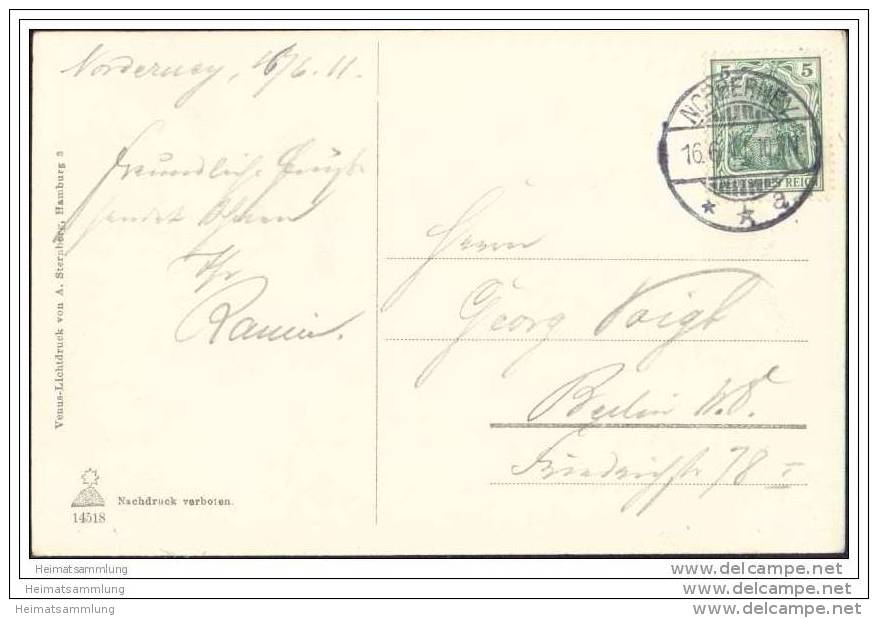 Norderney, 16/6.11.
Freundliche Grüße
sendet Ihnen
Ihr
Ramin.
Venus-Lichtdruck von A. Sternberg, Hamburg 3
Nachdruck verboten.
14518
5 5
DEUTSCHES REICH
NORDERNEY
16.6.
* * a
Herrn
Georg Voigt
Berlin W.8.
Friedrichstr 78 I
Heimatsammlung
Heimatsammlung
Heimatsammlung
www.delcampe.net
www.delcampe.net